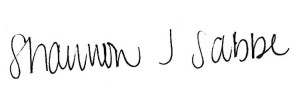 Shannon J Sabbe